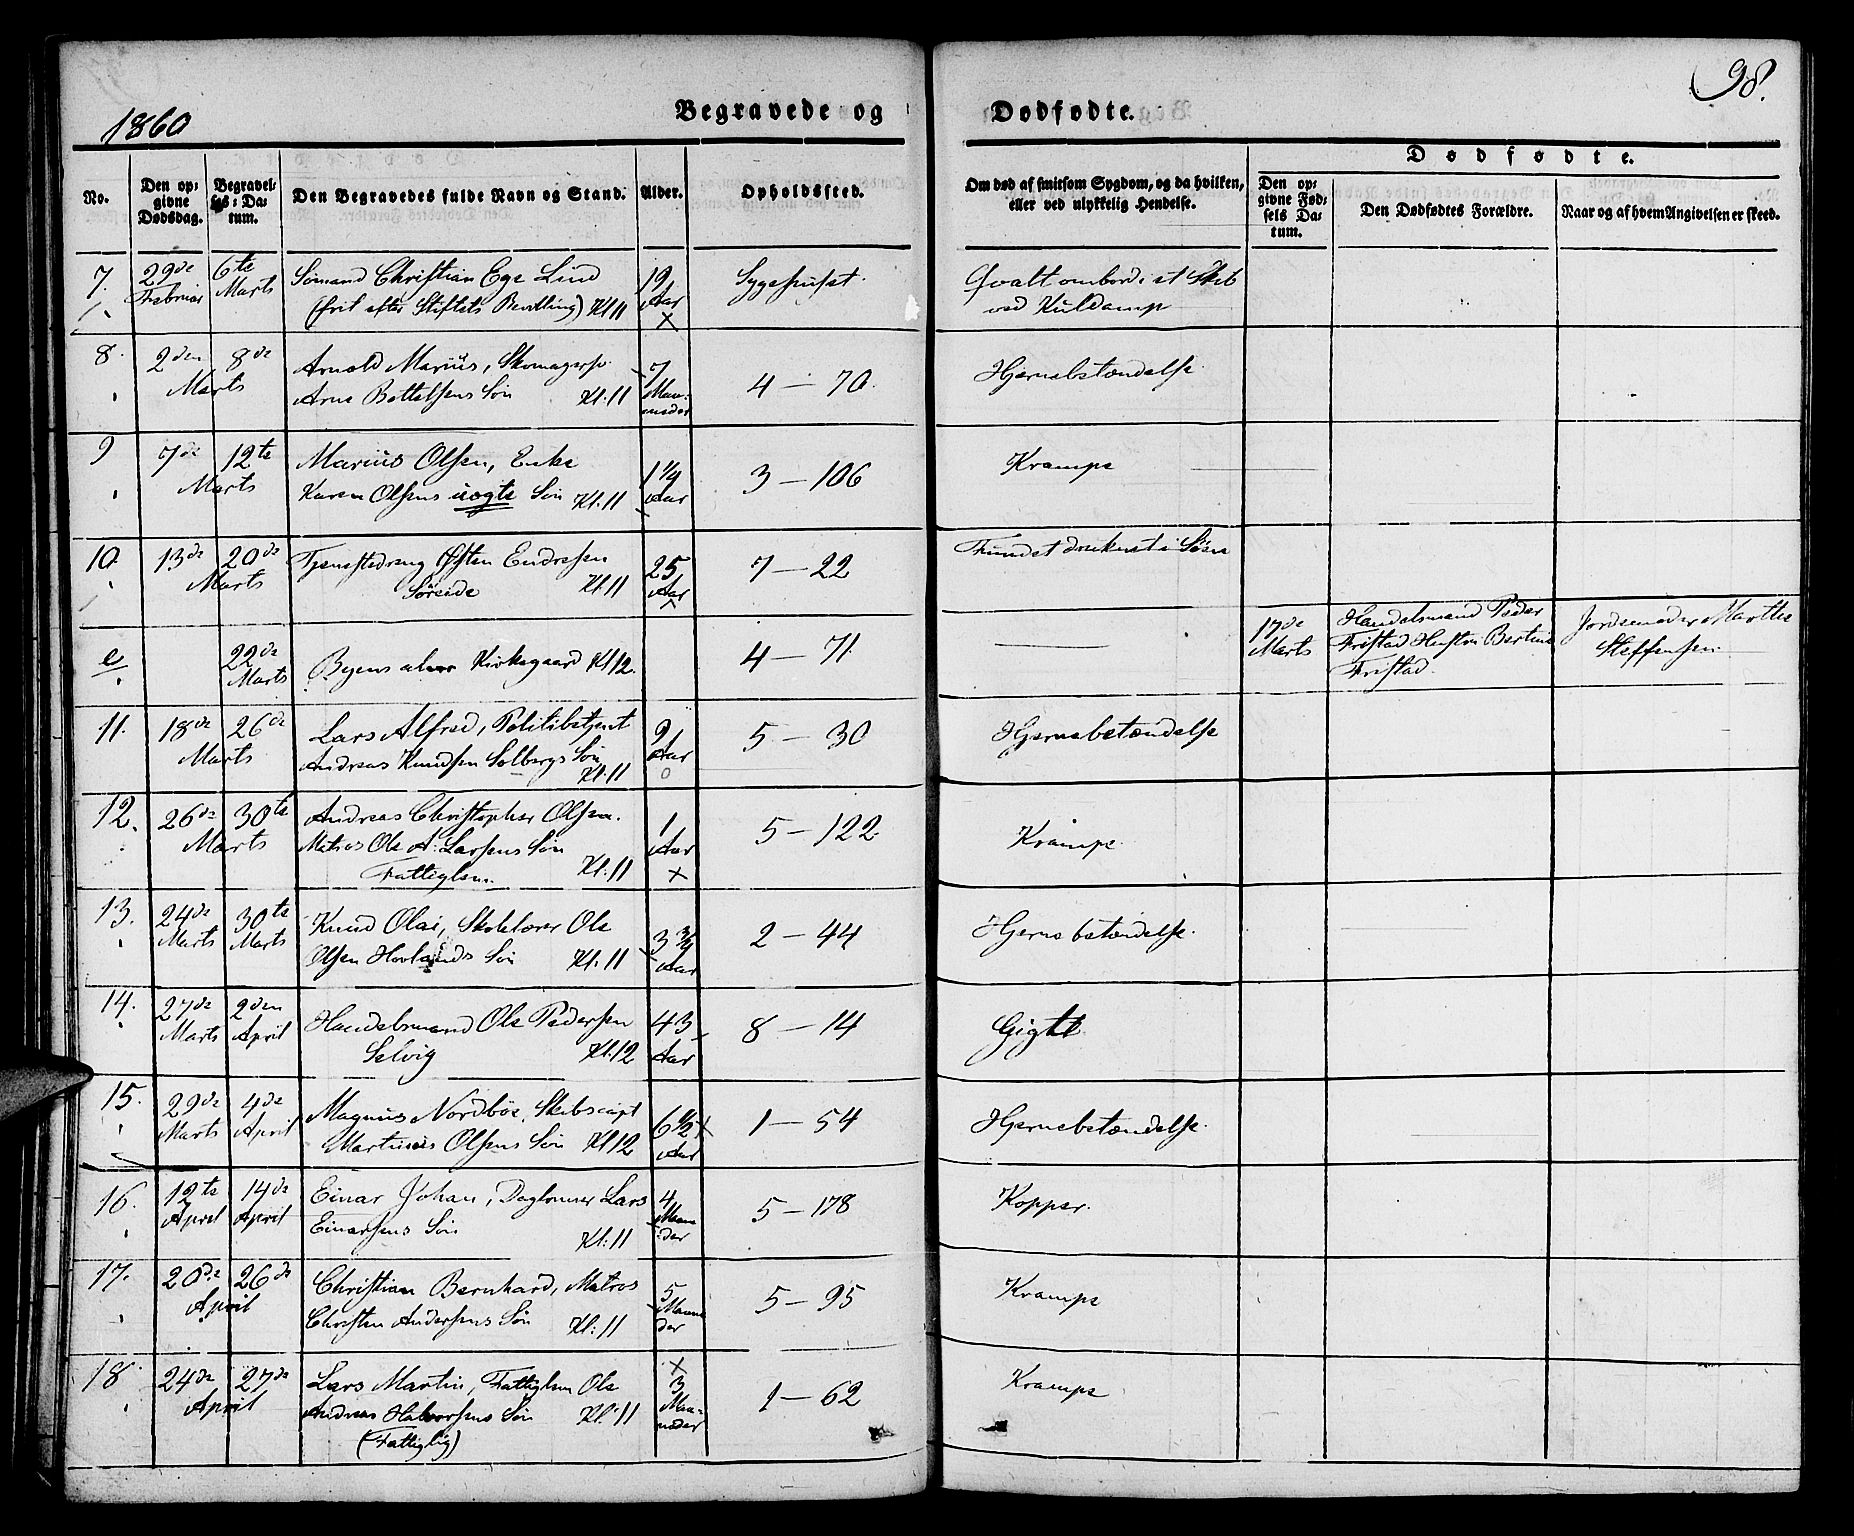 1860
Begravede og
Dødfødte.
98.
No.
Den op-
givne
Dødsdag.
Begravel-
ses-Da-
tum.
Den Begravedes fulde Navn og Stand.
Alder.
Opholdssted.
Om død af smitsom Sygdom, og da hvilken,
eller ved ulykkelig Hendelse.
Dødfødte.
Den op-
givne Fød-
sels Da-
tum.
Den Dødfødtes Forældre.
Naar og af hvem Angivelsen er skeed.
7. 29de Februar 6te Marts Sömand Christian Ege Lind 19 Aar Sygehuset. Qvalt ombord i et Skib
(frit efter Stiftets Bevilling) Kl 11 ved Kuldamp
8. 2den 8de Marts Arnold Marius, Skomagersv. 7 Maaneder 4 – 70. Hjernebetændelse.
Arne Bottelsens Sön Kl: 11
9 7de 12te Marts Marius Olsen, Enke 1 1/4 Aar 3 – 106 Krampe
Karen Olsens uægte Sön Kl. 11
10. 13de 20de Marts Tjenestedreng Østen Endresen 25 Aar 7 – 22 Fundet druknet i Söen
Söreide Kl: 11
e 22de Marts Byens Kirkegaard Kl 12. 4 – 71 17de Marts Handelsmand Peder Jordemoder Marthe
Fristad Hustru Bertine Steffensen.
Fristad.
11. 18de 26de Marts Lars Alfred, Politibetjent 9 Aar 5 – 30 Hjernebetændelse
Andreas Knudsen Solbergs Sön Kl. 11
12. 26de 30te Marts Andreas Christopher Olsen. 1 Aar 5 – 122. Krampe.
Matros Ole A. Larsens Sön
Fattiglem. Kl: 11
13. 24de Marts 30te Marts Knud Olai, Skolelærer Ole 3 3/4 Aar 2 – 44 Hjernebetændelse.
Olsen Hovlands Sön Kl: 11
14. 27de Marts 2den April Handelsmand Ole Pedersen 43 Aar 8 – 14 Gigt
Selvig Kl. 12
15. 29de Marts 4de April Magnus Nordböe, Skibscapt 6 1/2 Aar 1 – 54 Hjernebetændelse.
Martinius Olsens Sön Kl 12
16. 12te April 14de April Einar Johan, Daglönner Lars 4 Maaneder 5 – 178 Kopper.
Einarsens Sön Kl: 11
17. 20de 26de April Christian Bernhard, Matros 5 Maaneder 5 – 95 Krampe
Christen Andersens Sön Kl: 11
18 24de 27de April Lars Martin, Fattiglem Ole 3 Maaneder 1 – 62 Krampe
Andreas Halvorsens Sön Kl: 11
(Fattiglig)